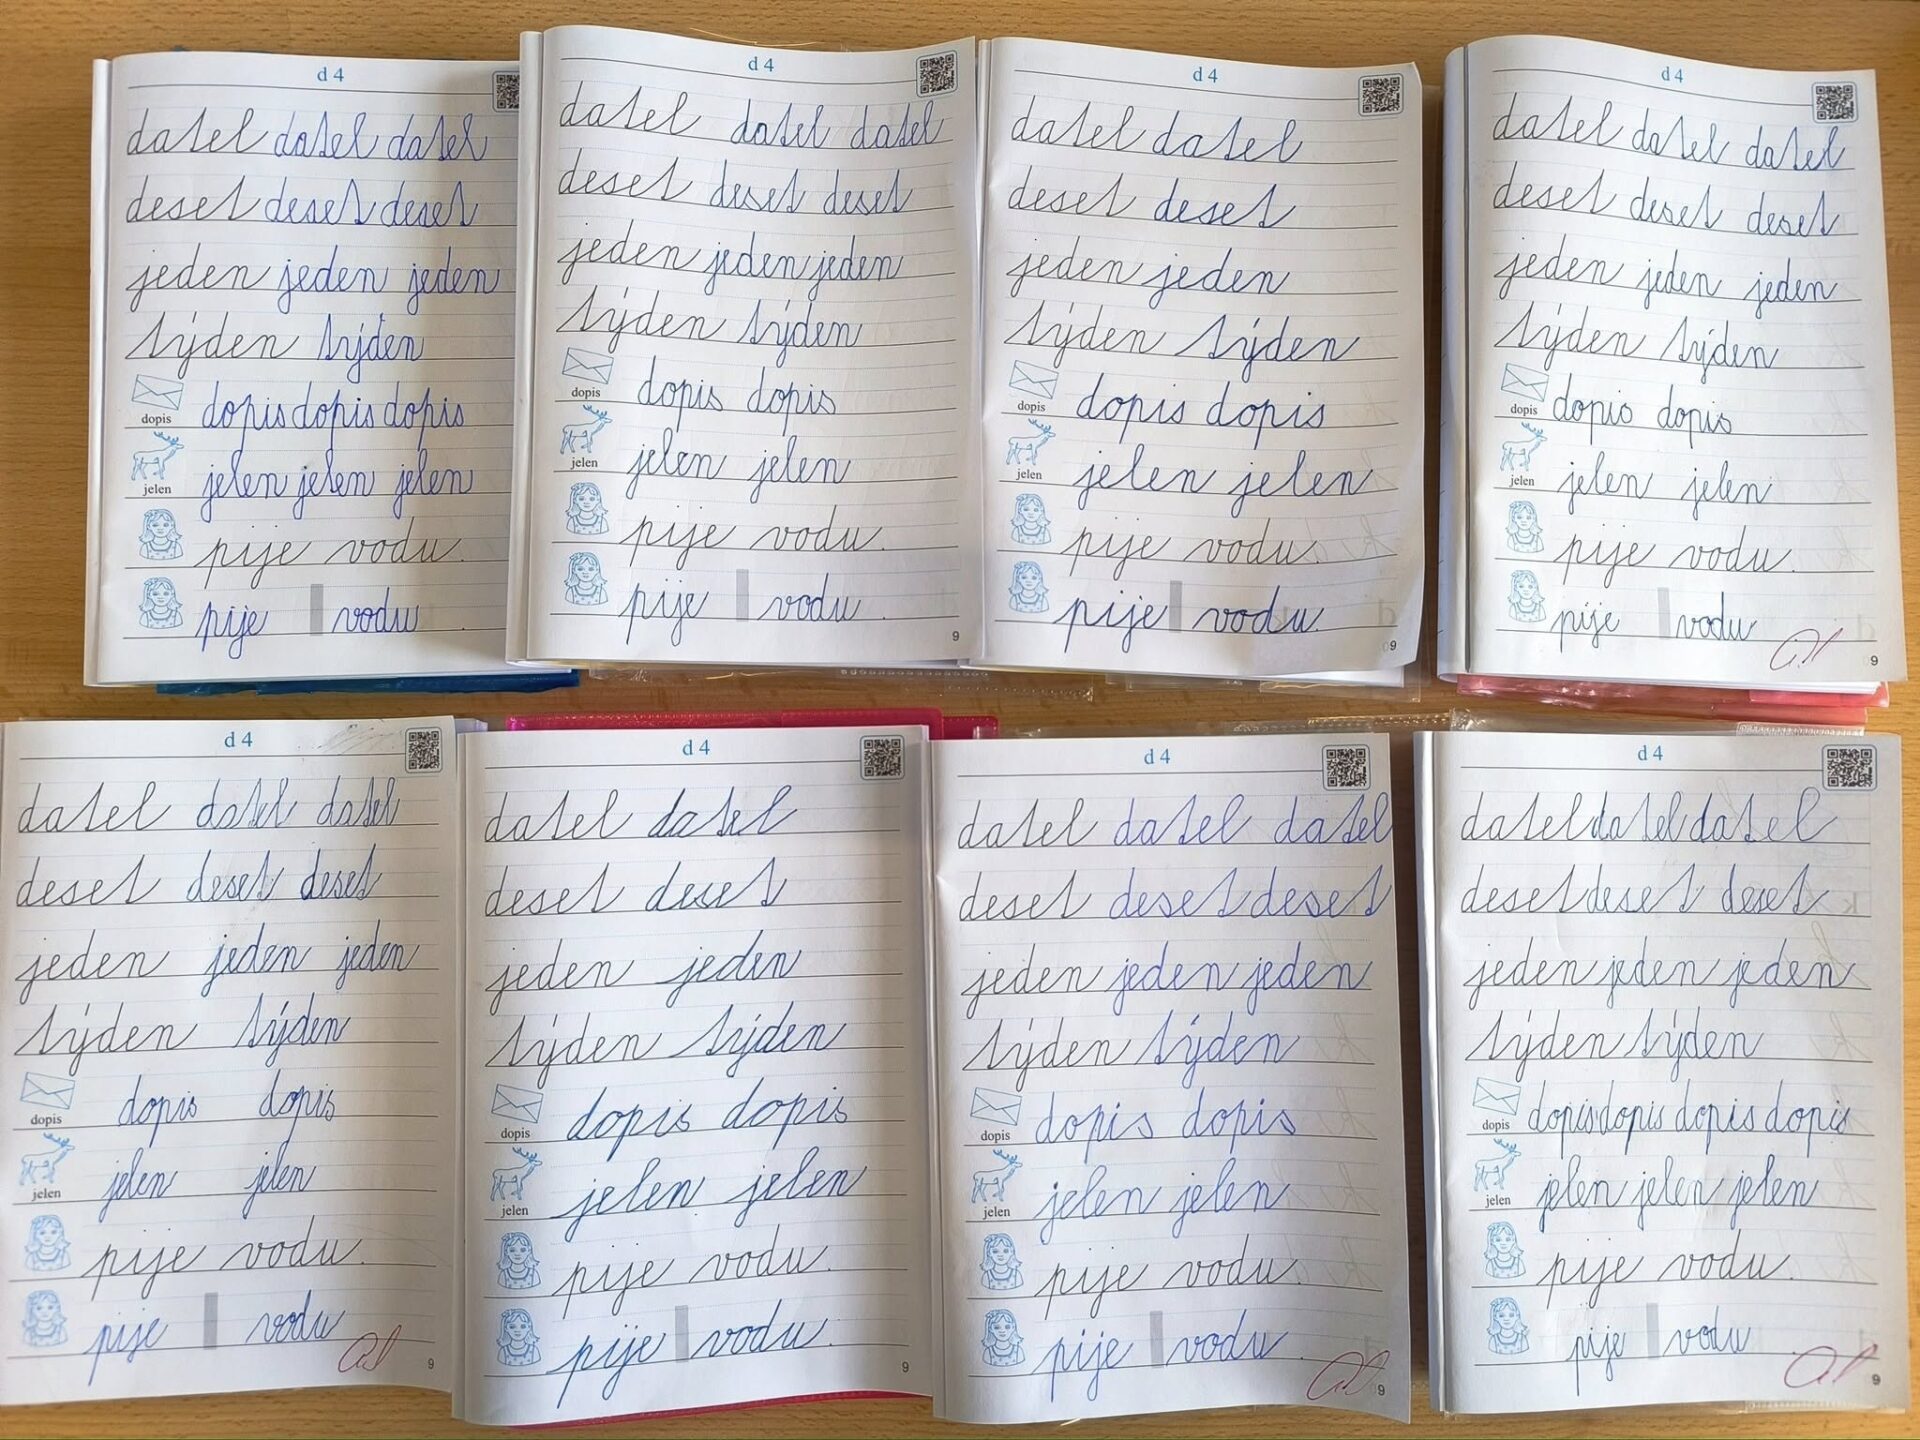 d 4
datel datel datel
deset deset deset
jeden jeden jeden
týden týden
dopis dopis dopis dopis
jelen jelen jelen jelen
pije vodu.
pije vodu.
d 4
datel datel datel
deset deset deset
jeden jeden jeden
týden týden
dopis dopis dopis
jelen jelen jelen
pije vodu.
pije vodu.
9
d 4
datel datel
deset deset
jeden jeden
týden týden
dopis dopis dopis
jelen jelen jelen
pije vodu.
pije vodu.
9
d 4
datel datel datel
deset deset deset
jeden jeden jeden
týden týden
dopis dopis dopis
jelen jelen jelen
pije vodu.
pije vodu
9
d 4
datel datel datel
deset deset deset
jeden jeden jeden
týden týden
dopis dopis dopis
jelen jelen jelen
pije vodu.
pije vodu
9
d 4
datel datel
deset deset
jeden jeden
týden týden
dopis dopis dopis
jelen jelen jelen
pije vodu.
pije vodu.
9
d 4
datel datel datel
deset deset deset
jeden jeden jeden
týden týden
dopis dopis dopis
jelen jelen jelen
pije vodu.
pije vodu.
9
d 4
datel datel datel
deset deset deset
jeden jeden jeden
týden týden
dopis dopis dopis dopis dopis
jelen jelen jelen jelen
pije vodu.
pije vodu
9